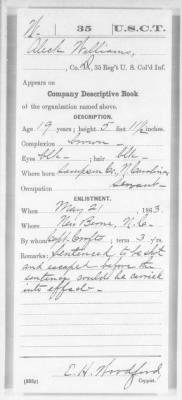 W | 35 | U.S.C.T.
Aleck Williams,
, Co. D, 35 Reg't U. S. Col'd Inf.
Appears on
Company Descriptive Book
of the organization named above.
DESCRIPTION.
Age 19 years; height 5 feet 11½ inches.
Complexion brown
Eyes blk ; hair blk
Where born Sampson Co., N. Carolina
Occupation Servant
ENLISTMENT.
When May 21 , 1863.
Where New Berne, N.C.
By whom Capt. Crofts ; term 3 y'rs.
Remarks: Sentenced to be shot
and escaped before the
sentence could be carried
into effect
E. H. Woodford
Copyist.